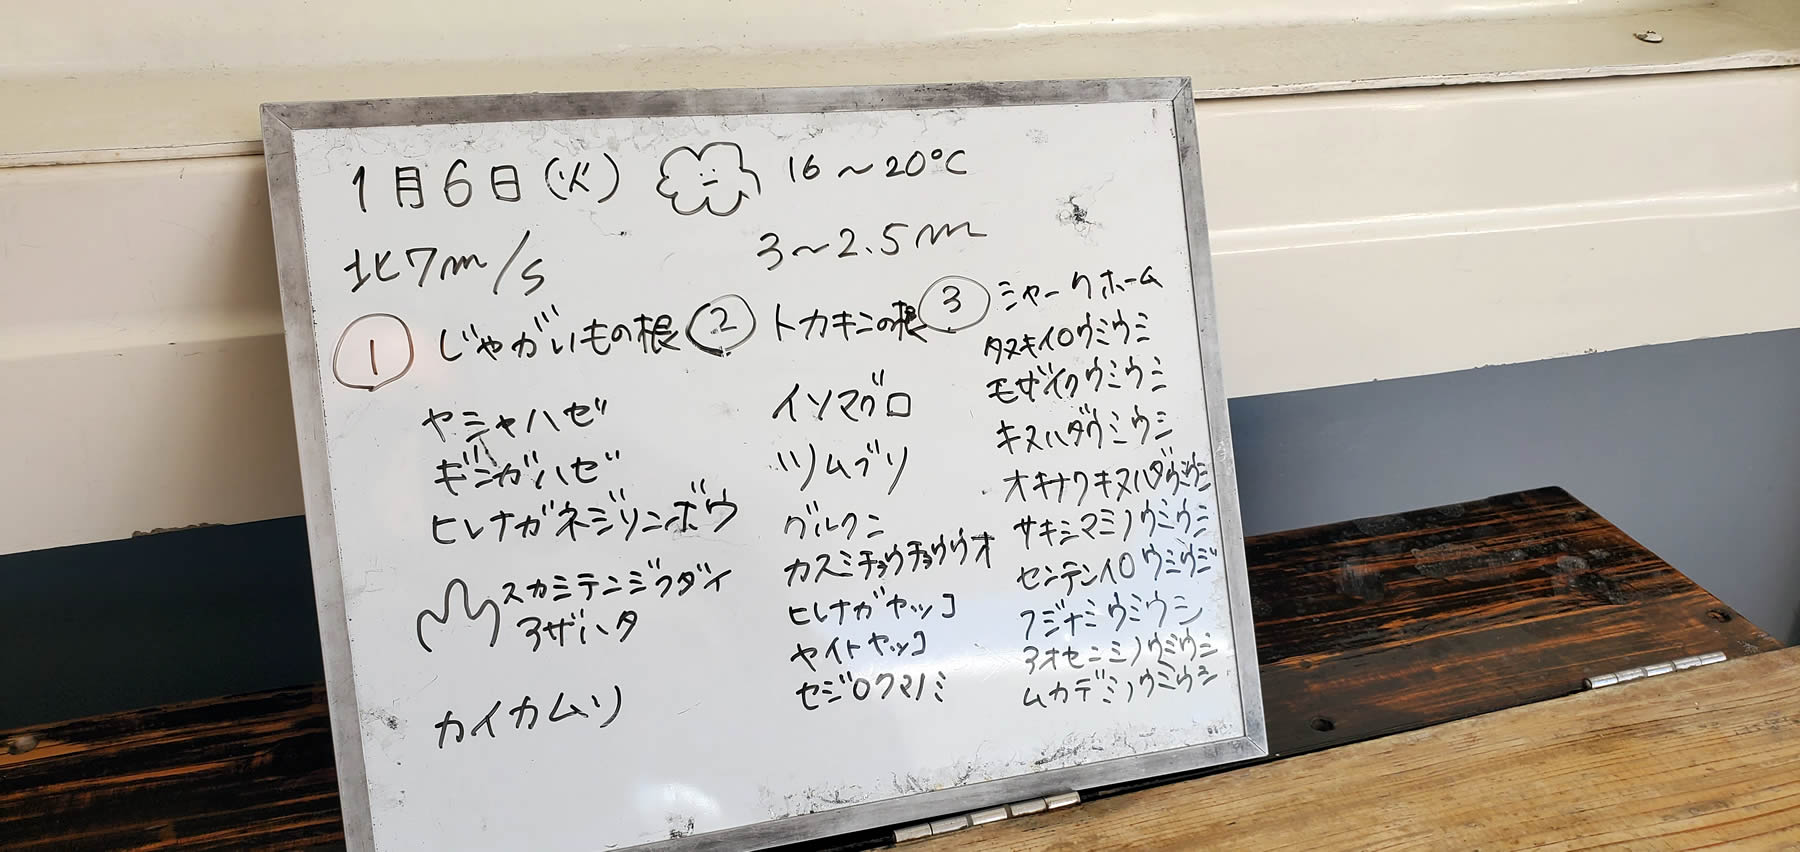 1月6日(火) 16～20℃
北7m/s 3～2.5m
① じゃがいもの根
ヤシャハゼ
ギンガハゼ
ヒレナガネジリンボウ
スカシテンジクダイ
アザハタ
カイカムリ
② トカキンの根
イソマグロ
ツムブリ
グルクン
カスミチョウチョウウオ
ヒレナガヤッコ
ヤイトヤッコ
セジロクマノミ
③ シャークホーム
タヌキイロウミウシ
モザイクウミウシ
キヌハダウミウシ
オキナワキヌハダウミウシ
サキシマミノウミウシ
センテンイロウミウシ
フジナミウミウシ
アオセンミノウミウシ
ムカデミノウミウシ